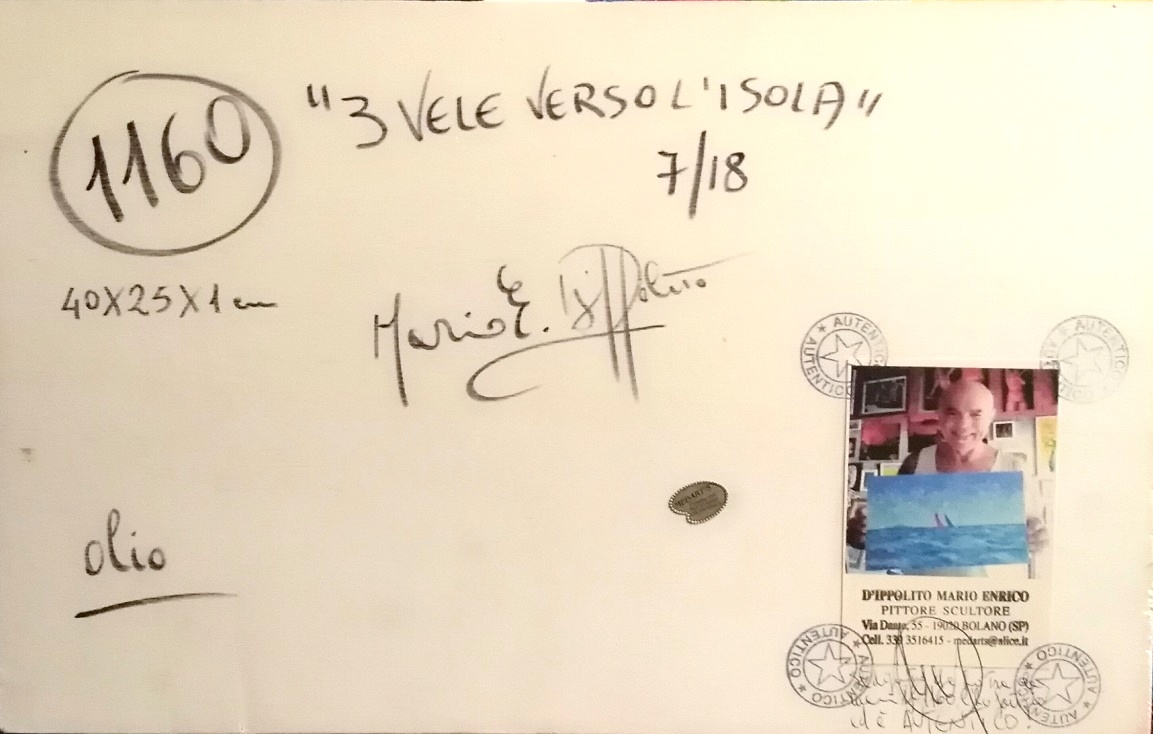 1160
"3 VELE VERSO L'ISOLA"
7/18
40X25X1 cm
Mario E. D'Ippolito
olio
AUTENTICO ★ AUTENTICO
AUTENTICO
D'IPPOLITO MARIO ENRICO
PITTORE SCULTORE
Via Dante, 55 - 19020 BOLANO (SP)
Cell. 339 3516415 - medarts@alice.it
AUTENTICO ★ AUTENTICO
AUTENTICO ★ AUTENTICO
ed è AUTENTICO!